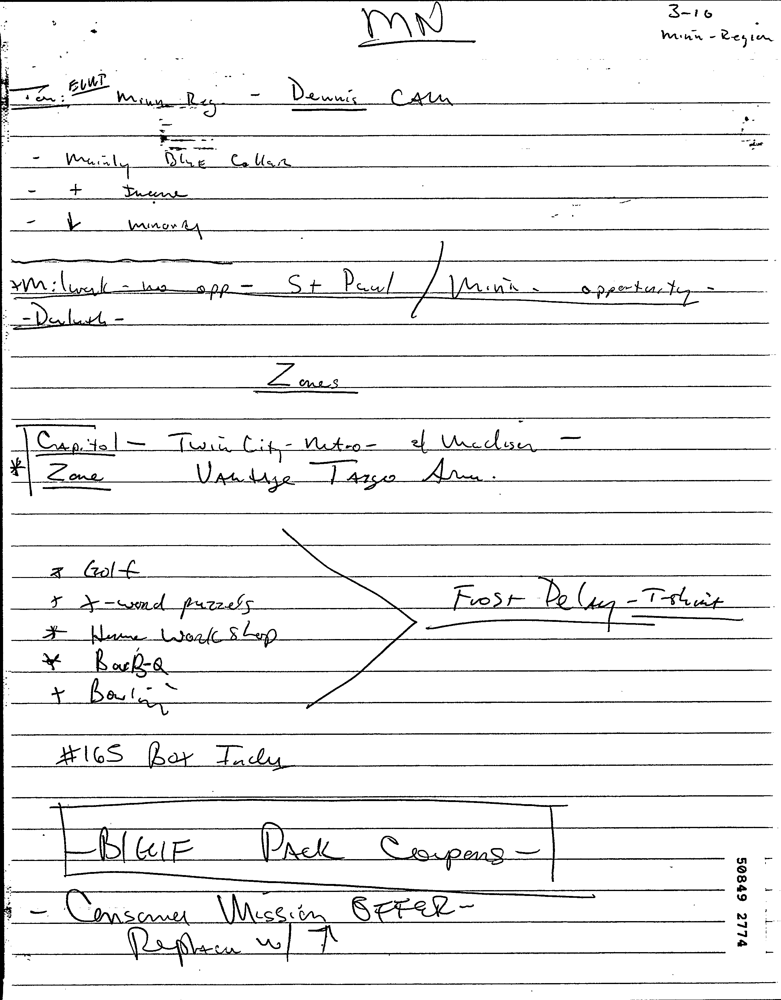 MN
3-10
Minn-Region
Minn Reg. - Dennis
- Mainly Blue Collar
- + Income
- ↓ minority
- no opp - St Paul / Minn - opportunity -
- Duluth -
Zones
Capitol - Twin City - Metro -
* Zone Vantage Target
* Golf
+ X-word puzzels
* Home Work Shop
* Bar B-Q
+ Bowling
Frost Delay - T-shirt
#165 Box Indy
- B1G1F Pack Coupons -
- Consumer Mission OFFER -
Replace w/ ↑
50849 2774